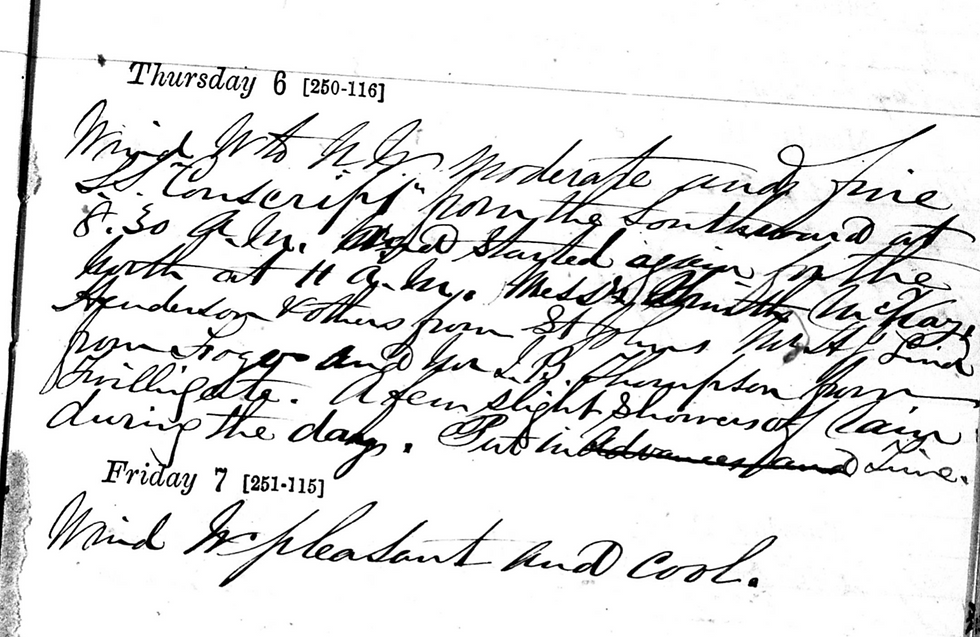 Thursday 6 [250-116]
Wind W to N.W. moderate and fine
S.S. "Conscript" from the Southward at
8.30 A.M. and started again for the
North at 11 A.M. Messrs Smith, McKay,
Henderson & others from St Johns Lind
from Fogo and J.B. Thompson from
Twillingate. A few slight Showers of Rain
during the day. Put in Advances and Time.
Friday 7 [251-115]
Wind W pleasant and cool.